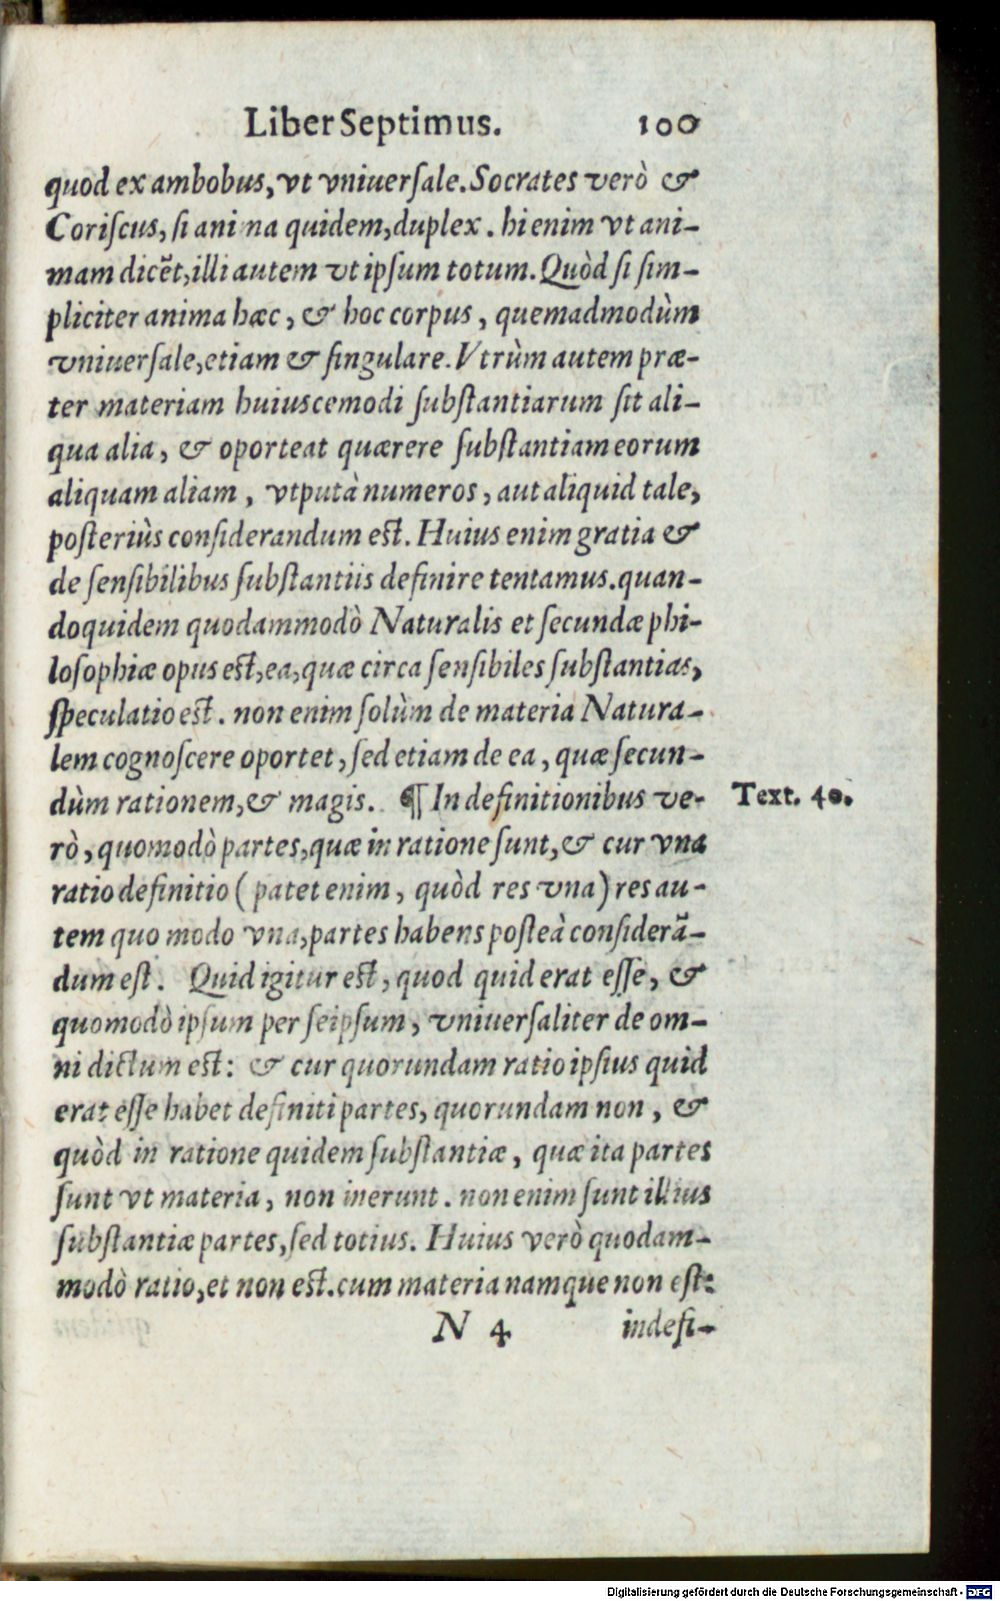 Liber Septimus. 100
quod ex ambobus, vt vniuerſale. Socrates verò &
Coriſcus, ſi anima quidem, duplex. hi enim vt ani-
mam dicēt, illi autem vt ipſum totum. Quòd ſi ſim-
pliciter anima hæc, & hoc corpus, quemadmodùm
vniuerſale, etiam & ſingulare. Vtrùm autem præ-
ter materiam huiuscemodi ſubſtantiarum ſit ali-
qua alia, & oporteat quærere ſubſtantiam eorum
aliquam aliam, vtputà numeros, aut aliquid tale,
poſteriùs conſiderandum eſt. Huius enim gratia &
de ſenſibilibus ſubſtantiis definire tentamus. quan-
doquidem quodammodò Naturalis et ſecundæ phi-
loſophiæ opus eſt, ea, quæ circa ſenſibiles ſubſtantias,
ſpeculatio eſt. non enim ſolùm de materia Natura-
lem cognoſcere oportet, ſed etiam de ea, quæ ſecun-
dùm rationem, & magis. ¶ In definitionibus ve- Text. 40.
rò, quomodò partes, quæ in ratione ſunt, & cur vna
ratio definitio (patet enim, quòd res vna) res au-
tem quo modo vna, partes habens poſteà conſiderā-
dum eſt. Quid igitur eſt, quod quid erat eſſe, &
quomodò ipſum per ſeipſum, vniuerſaliter de om-
ni dictum eſt: & cur quorundam ratio ipſius quid
erat eſſe habet definiti partes, quorundam non, &
quòd in ratione quidem ſubſtantiæ, quæ ita partes
ſunt vt materia, non inerunt. non enim ſunt illius
ſubſtantiæ partes, ſed totius. Huius verò quodam-
modò ratio, et non eſt. cum materia namque non eſt:
N 4 indefi-
Digitalisierung gefördert durch die Deutsche Forschungsgemeinschaft - DFG